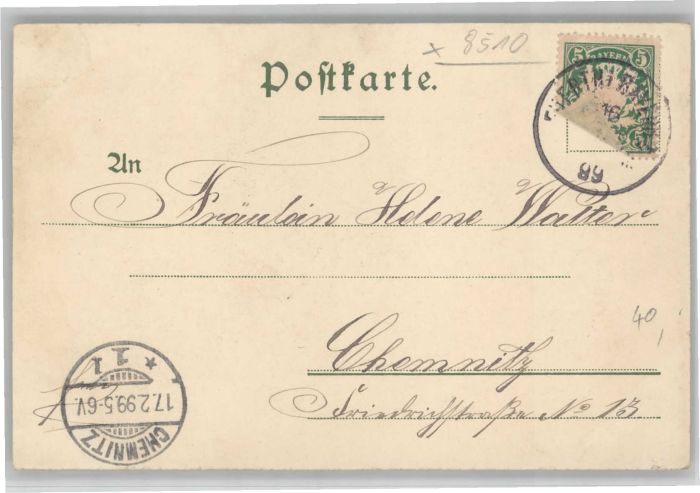 x 8510
Postkarte.
5 BAYERN 5
16
99
An
Fräulein Helene Walter
40,
Chemnitz
Friedrichstraße No 13.
CHEMNITZ
17.2.99.5-6V.
* 1 1